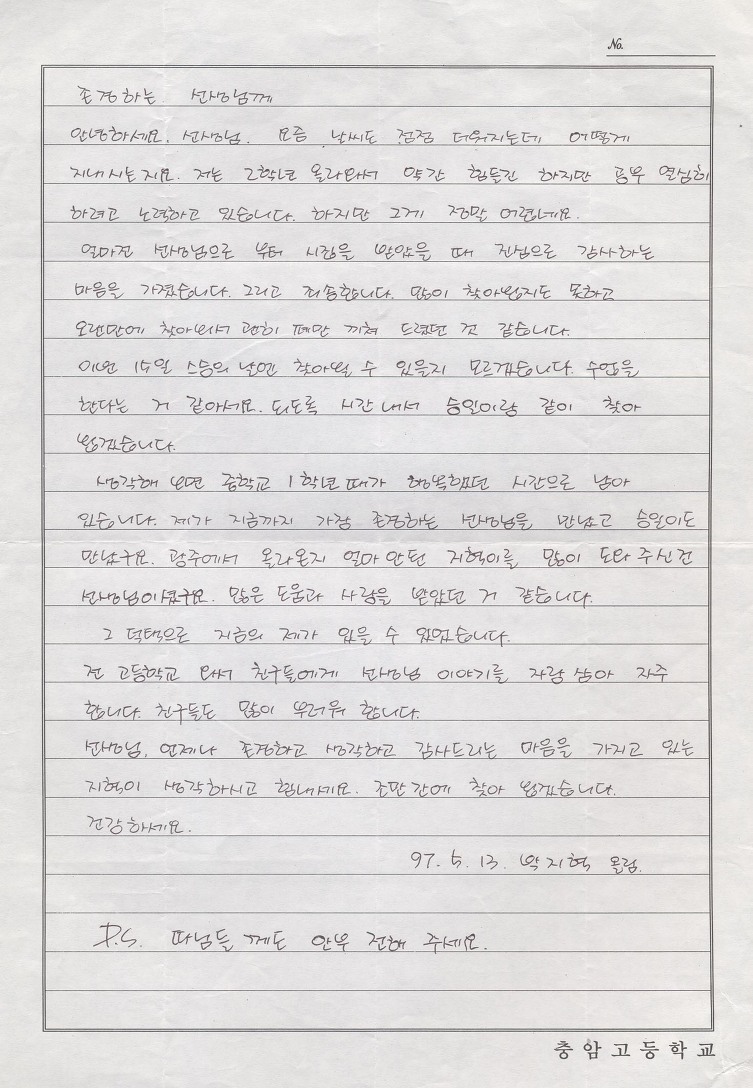 No.
존경하는 선생님께
안녕하세요. 선생님. 요즘 날씨도 점점 더워지는데 어떻게
지내시는지요. 저는 2학년 올라와서 약간 힘들긴 하지만 공부 열심히
하려고 노력하고 있습니다. 하지만 그게 정말 어렵네요.
얼마전 선생님으로 부터 시집을 받았을 때 진심으로 감사하는
마음을 가졌습니다. 그리고 죄송합니다. 많이 찾아뵙지도 못하고
오랜만에 찾아와서 괜히 폐만 끼쳐 드렸던 것 같습니다.
이번 15일 스승의 날엔 찾아뵐 수 있을지 모르겠습니다. 수업을
한다는 거 같아서요. 되도록 시간 내서 승일이랑 같이 찾아
뵙겠습니다.
생각해 보면 중학교 1학년 때가 행복했던 시간으로 남아
있습니다. 제가 지금까지 가장 존경하는 선생님을 만났고 승일이도
만났구요. 광주에서 올라온지 얼마 안된 지혁이를 많이 도와 주신건
선생님이셨구요. 많은 도움과 사랑을 받았던 거 같습니다.
그 덕택으로 지금의 제가 있을 수 있었습니다.
전 고등학교 와서 친구들에게 선생님 이야기를 자랑 삼아 자주
합니다. 친구들도 많이 부러워 합니다.
선생님, 언제나 존경하고 생각하고 감사드리는 마음을 가지고 있는
지혁이 생각하시고 힘내세요. 조만간에 찾아 뵙겠습니다.
건강하세요.
97. 5. 13. 박지혁 올림.
P.S. 따님들 께도 안부 전해 주세요.
충암고등학교